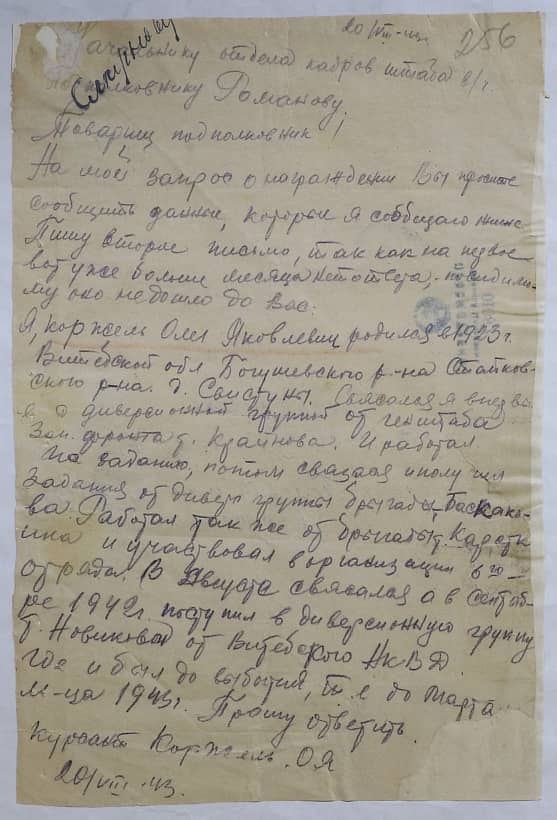 20/VIII-43.
256
Начальнику отдела кадров штаба в/г.
подполковнику Романову.
Товарищ подполковник!
На мой запрос о награждении Вы просите
сообщить данные, которые я сообщаю ниже
Пишу второе письмо, так как на первое
вот уже больше месяца нет ответа, по-видимо-
му оно не дошло до Вас.
Я, Коржель Олег Яковлевич родился в 1923 г.
Витебской обл Богушевского р-на
ского р-на. д. Свистуны. Связался я впервы
е с диверсионной группой от генштаба
Зап. фронта т. Крайнова. И работал
по заданию, потом связался и получил
задания от диверс группы бригады, Баскако-
ва. Работал так же от бригады т.
и участвовал в организации 6го-
отряда. В августе связался а в сентяб-
ре 1942г. поступил в диверсионную группу
т. Новикова от Витебского НКВД.
где и был до выбытия, т. е до марта
м-ца 1943г. Прошу ответить.
Курсант Коржель. О Я
20/VIII-43.